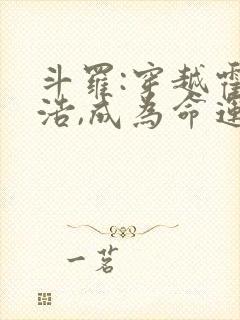 斗羅:穿越霍
浩,成為命運
一茗